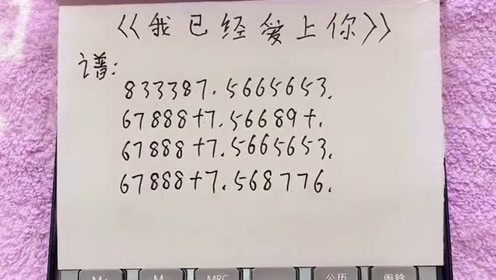 《我已经爱上你》
谱:
833387.5665653.
67888+7.56689+.
67888+7.5665653.
67888+7.568776.
M+ M- MRC 公历 闹铃